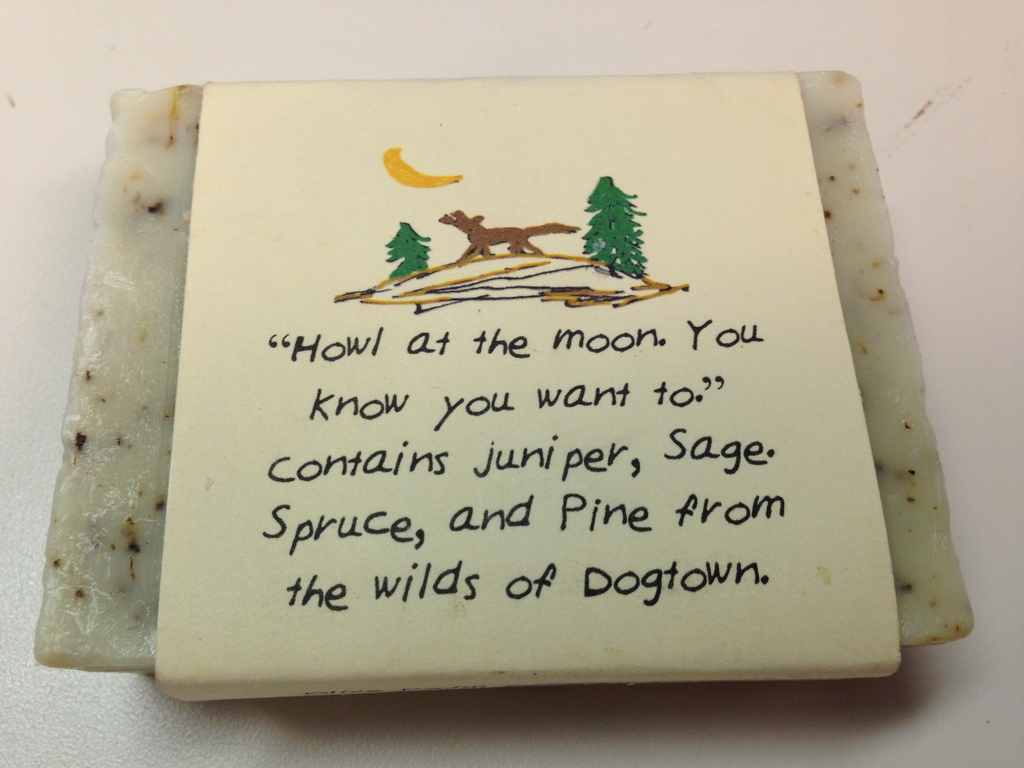 “Howl at the moon. You
know you want to.”
contains juniper, Sage.
Spruce, and Pine from
the wilds of Dogtown.